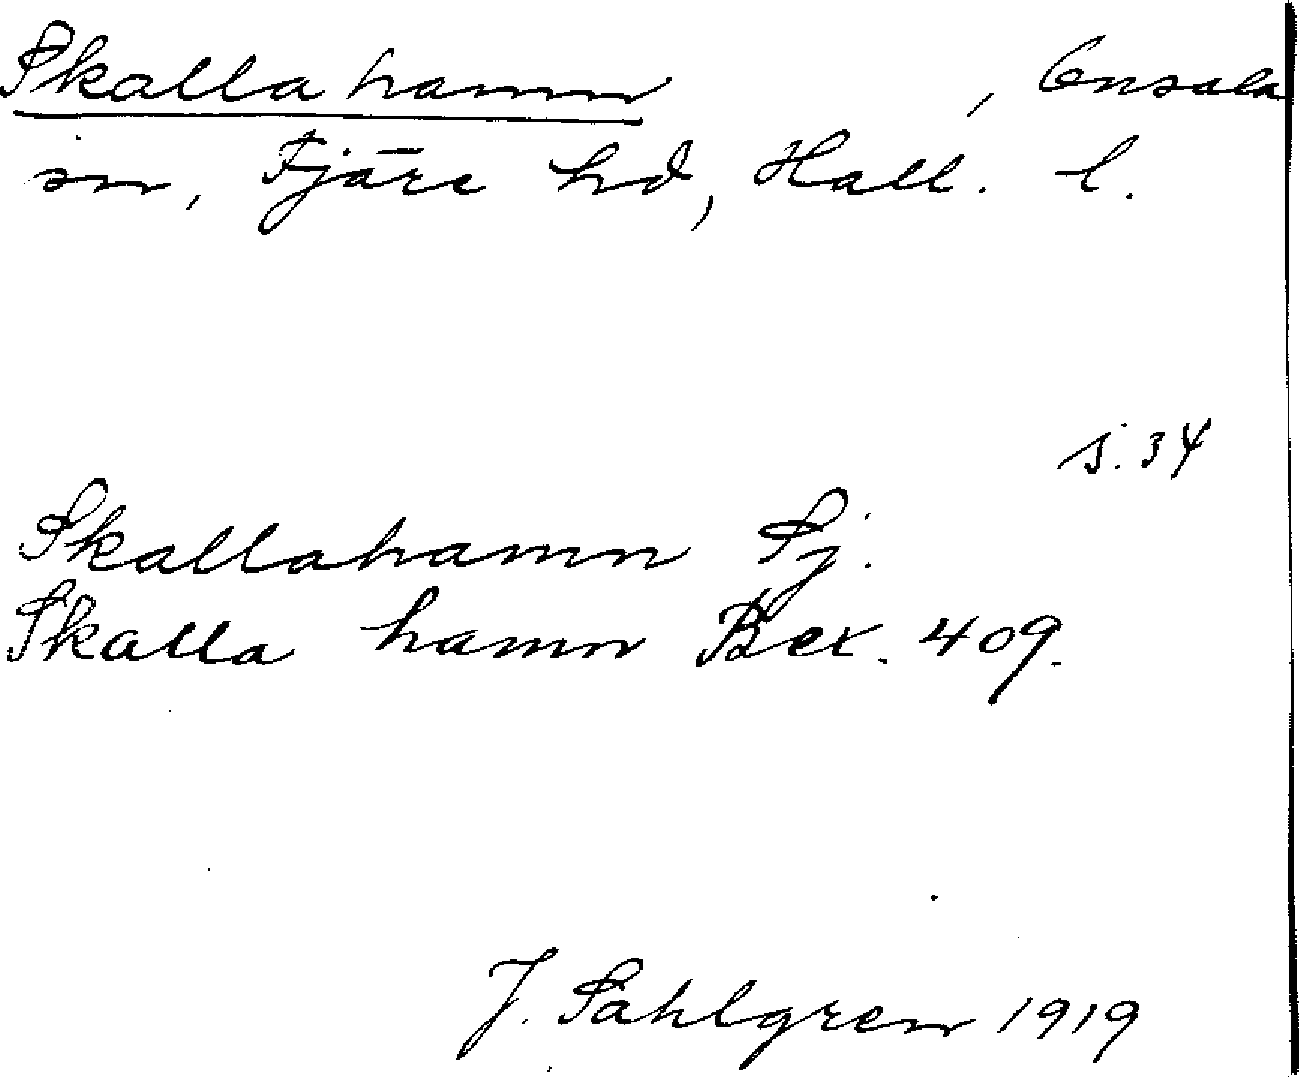 Skallahamn , Onsala
sn, Fjäre hd, Hall. l.
s. 34
Skallahamn Sj.
Skalla hamn Bex. 409.
J. Sahlgren 1919